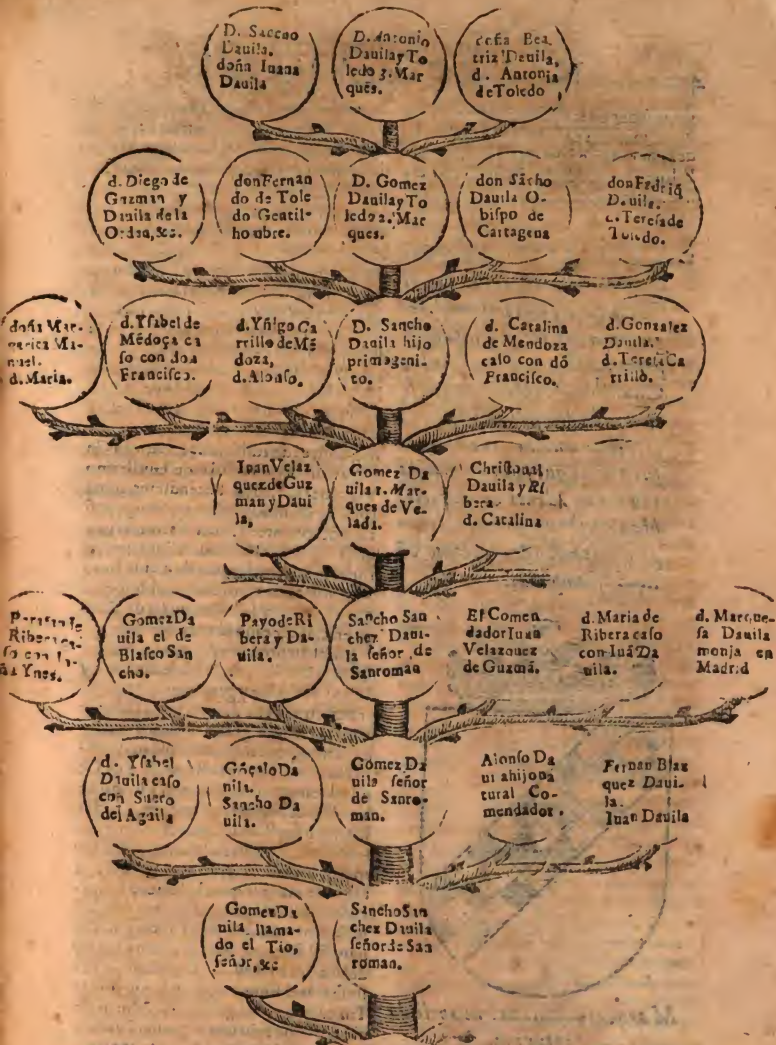 D. Sancho
Dauila.
doña Iuana
Dauila
D. Antonio
Dauila y To
ledo 3. Mar
qués.
doña Bea
triz Dauila,
d. Antonia
de Toledo
d. Diego de
Guzman y
Dauila de la
Orden, &c.
don Fernan
do de Tole
do Gentil-
hombre.
D. Gomez
Dauila y To
ledo 2. Mar
ques.
don Sācho
Dauila O-
bispo de
Cartagena
don Fadriq
Dauila.
d. Teresa de
Toledo.
doña Mar-
garita Ma-
nuel.
d. Maria.
d. Ysabel de
Mēdoça ca
so con don
Francisco.
d. Yñigo Ca
rrillo de Mē
doza,
d. Alonso.
D. Sancho
Dauila hijo
primogeni-
to.
d. Catalina
de Mendoza
caso con dō
Francisco.
d. Gonzalez
Dauila.
d. Teresa Ca
rrillo.
Iuan Velaz
quez de Guz
man y Daui
la,
Gomez Da
uila 1. Mar-
ques de Ve-
lada.
Christoual
Dauila y Ri
bera
d. Catalina
Ribera
so con
ña Ynes.
Gomez Da
uila el de
Blasco San
cho.
Payo de Ri
bera y Da-
uila.
Sancho San
chez Daui-
la señor de
Sanroman
El Comen
dador Iuan
Velazquez
de Guzmā.
d. Maria de
Ribera caso
con Iuā Da
uila.
d. Marque-
sa Dauila
monja en
Madrid
d. Ysabel
Dauila caso
con Suero
del Aguila
Gōçalo Da
uila.
Sancho Da
uila.
Gomez Da
uila señor
de Sanro-
man.
Alonso Da
uila hijo na
tural Co-
mendador.
Fernan Blaz
quez Daui-
la.
Iuan Dauila
Gomez Da
uila llama-
do el Tio,
señor, &c
Sancho San
chez Dauila
señor de San
roman.